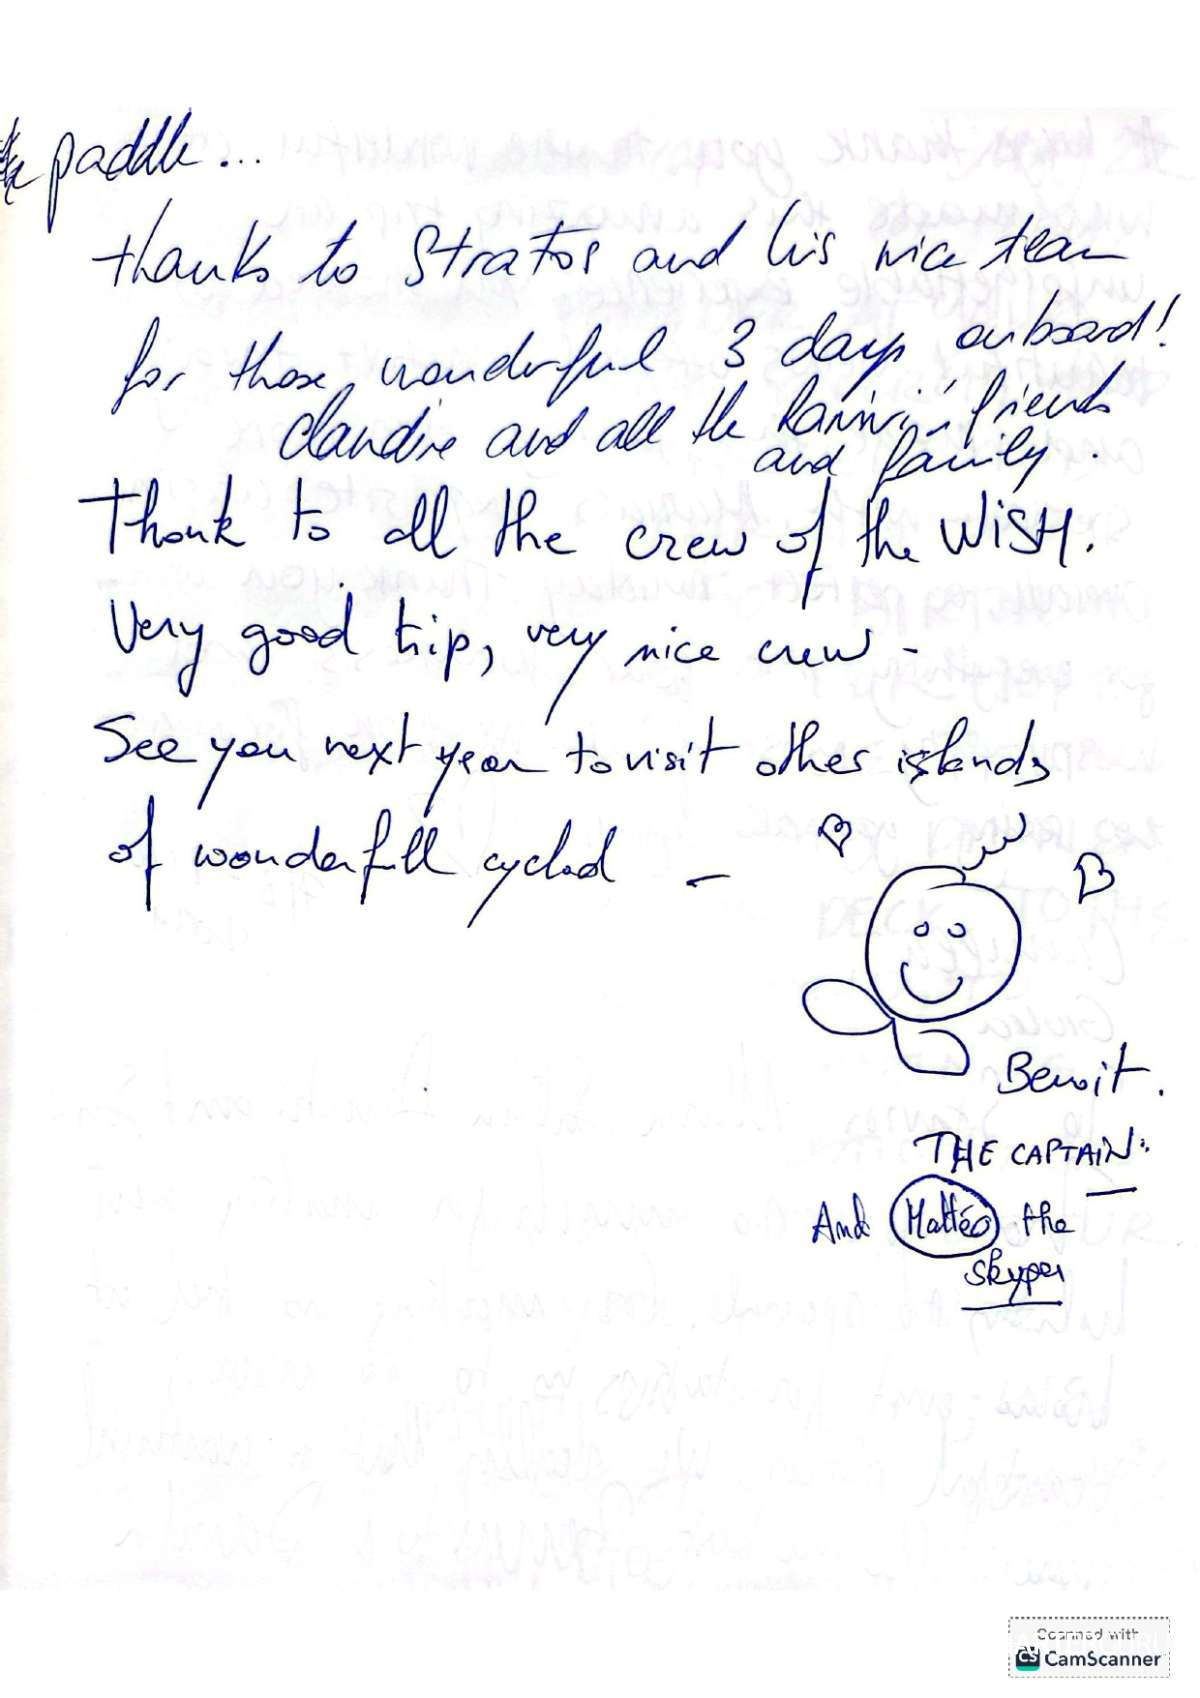 paddle...
thanks to Stratos and his nice team
for those wonderful 3 days onboard!
Claudine and all the friends
and family.
Thank to all the crew of the WISH.
Very good trip, very nice crew -
See you next year to visit other islands
of wonderfull cyclad -
Benoit.
THE CAPTAIN
And Mattéo the
skyper
Scanned with
CS CamScanner